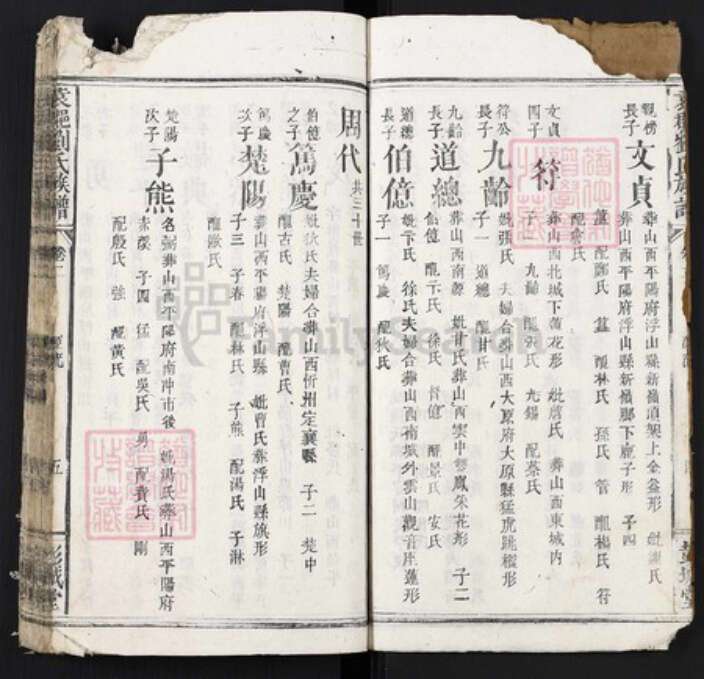 觀榜
長子
文貞
葬山西平陽府浮山縣新嶺頂架上金盆形 妣謝氏
葬山西平陽府浮山縣新嶺鄉下鹿子形 子四
配鄭氏 配林氏 孫氏 管 配楊氏 符
配詹氏
文貞
四子
符
葬山西北城下蓮花形 妣詹氏 葬山西東城內
子二 九齡 配張氏 九錫 配蔡氏
符公
長子
九齡
妣張氏 夫婦合葬山西大原府大原縣猛虎跳樅形
子一 道總 配甘氏
九齡
長子
道總
葬山西南 妣甘氏葬山西雲中雙鳳朱花形 子二
伯億 配卞氏 徐氏 督億 配景氏 安氏
道總
長子
伯億
妣卞氏 徐氏夫婦合葬山西南城外雲山觀音座蓮形
子一 篤慶 配狄氏
周代
共三十世
伯億
之子
篤慶
妣狄氏夫婦合葬山西忻州定襄縣 子二 楚中
配古氏 楚陽 配曹氏
篤慶
次子
楚陽
葬山西平陽府浮山縣 妣曹氏葬浮山縣旗形
子三 子春 配林氏 子熊 配湯氏 子淋
配歐氏
楚陽
次子
子熊
名 葬山西平陽府南沖市後 妣湯氏葬山西平陽府
子四 猛 配吳氏 勇 配黃氏 剛
配殷氏 強 配黃氏
袁郡劉氏族譜
卷一
五
彭城堂
FamilySearch